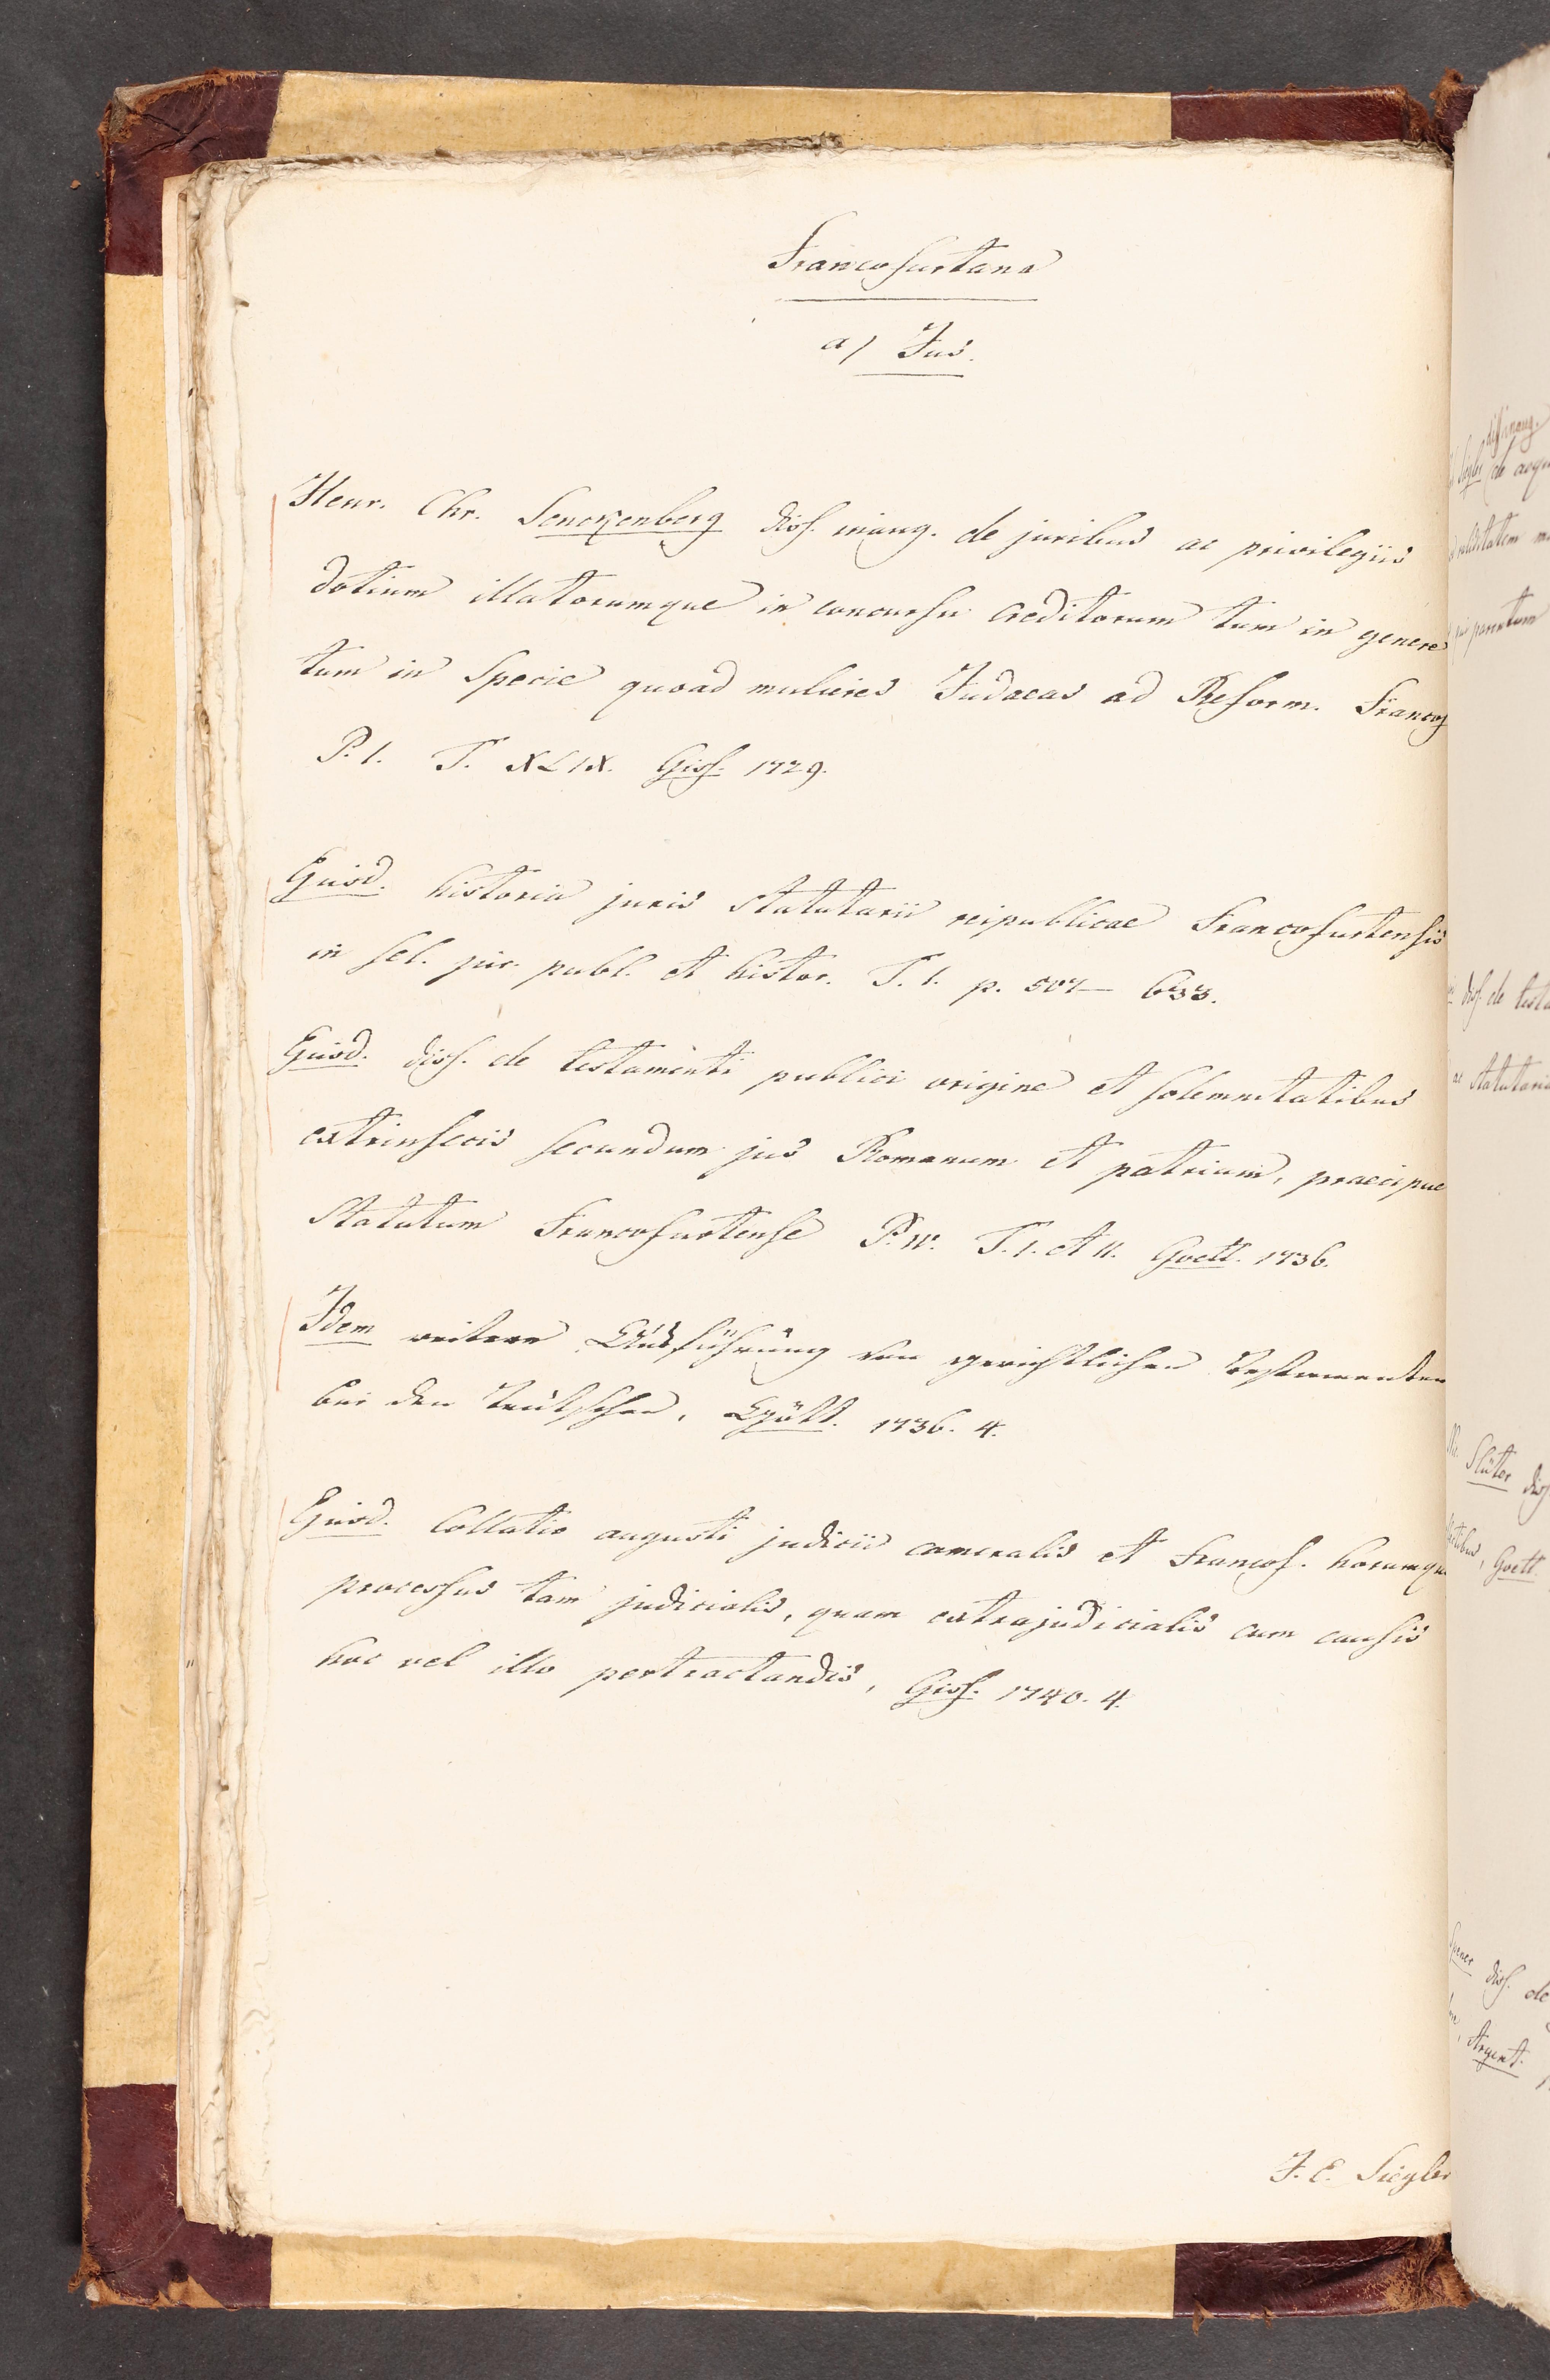 Francofurtana
a) Jus.
Henr. Chr. Senckenberg diss. inaug. de juribus ac privilegiis
dotium illatorumque in concursu creditorum tum in genere
tum in specie quoad mulieres Judaeas ad Reform. Francof
P. I. T. XLIX. Giss. 1729.
Ejusd. historia juris statutarii reipublicae Francofurtensis
in sel. jur. publ. et histor. T. I. p. 507 – 633.
Ejusd. diss. de testamenti publici origine et solemnitatibus
extrinsecis secundum jus Romanum et patrium, praecipue
statutum Francofurtense P. IV. T. I. et II. Goett. 1736.
Idem weitere Ausführung von gerichtlichen Testamenten
bei den Teutschen, Gött. 1736. 4.
Ejusd. Collatio augusti judicii cameralis et Francof. horumque
processus tam judicialis, quam extrajudicialis cum causis
hoc vel illo pertractandis, Giss. 1740. 4.
J. E. Siegler
diss. inaug.
Siegler de
validitatem
parentum
diss. de
ac statutaria
Slüter diss
Goett.
Spener diss. de
Argent.